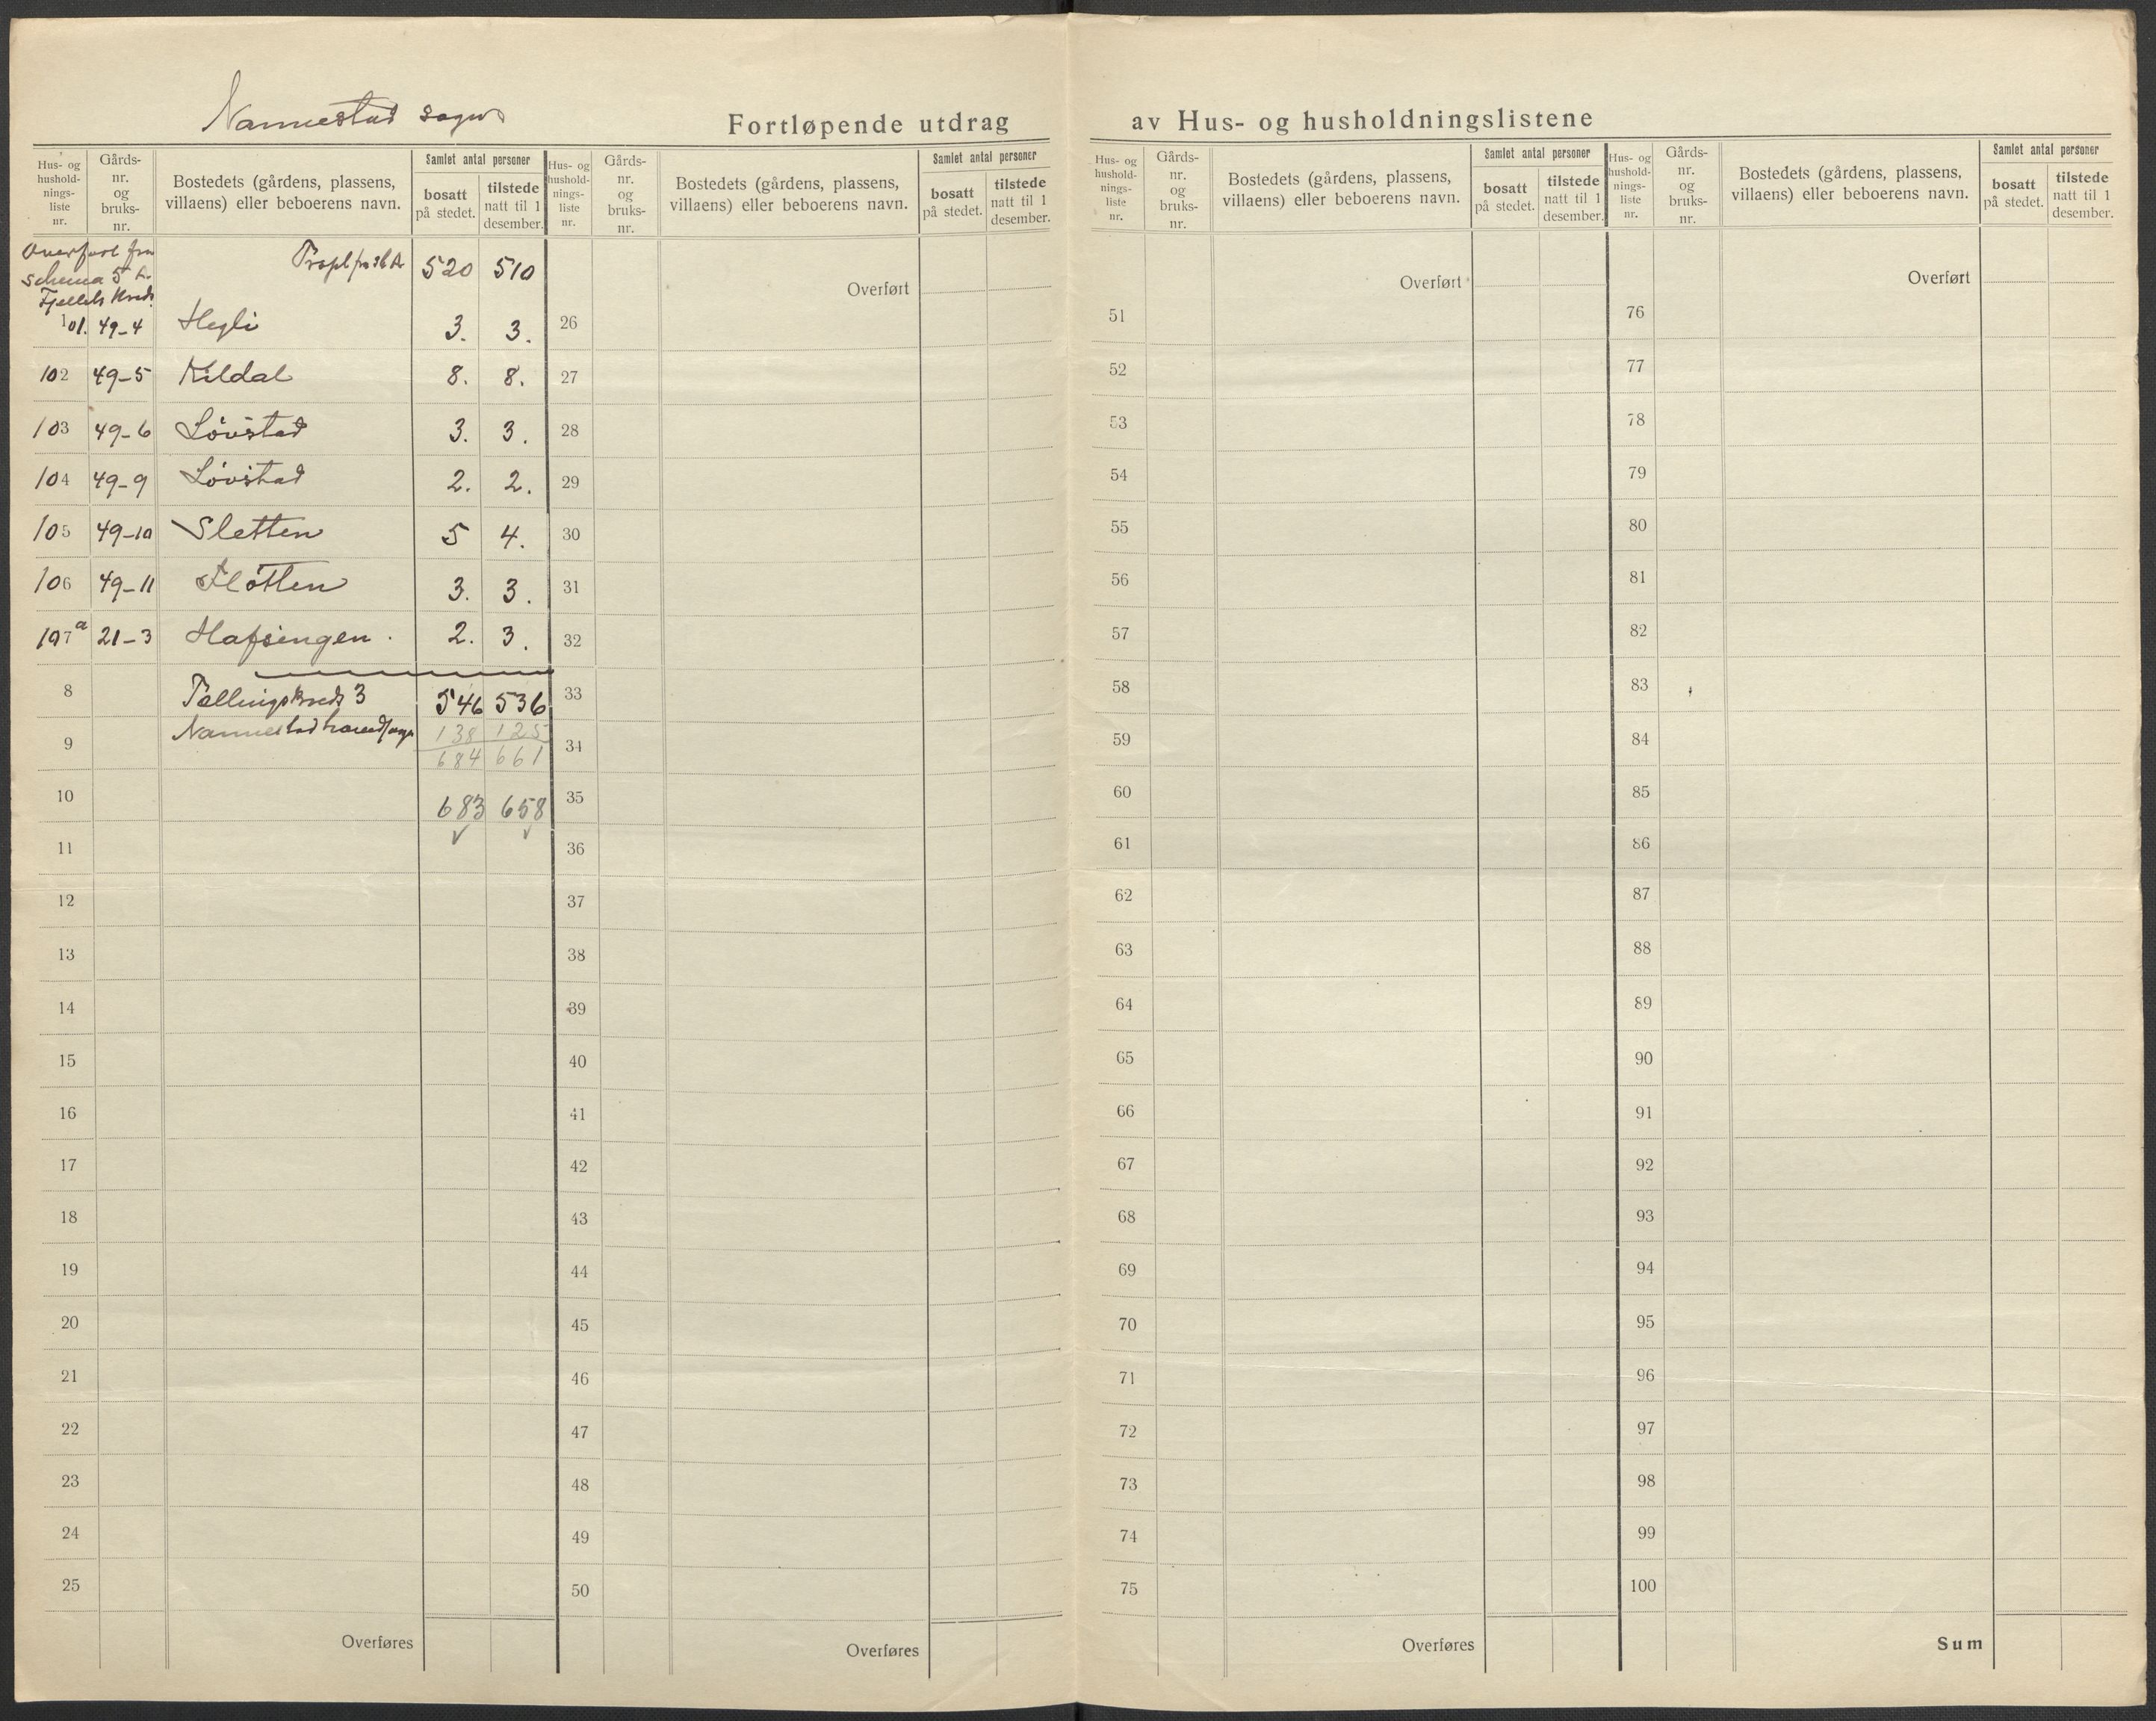 Nannestad sogn
Fortløpende utdrag av Hus- og husholdningslistene
Hus- og hushold- nings- liste nr.
Gårds- nr. og bruks- nr.
Bostedets (gårdens, plassens, villaens) eller beboerens navn.
Samlet antal personer
bosatt på stedet.
tilstede natt til 1 desember.
Overført fra
schema 5 A.
Fjellets Kreds
520 510
101. 49-4 Hegli 3. 3.
102 49-5 Kildal 8. 8.
103 49-6 Løvstad 3. 3.
104 49-9 Løvstad 2. 2.
105 49-10 Sletten 5 4.
106 49-11 Fløtten 3. 3.
107a 21-3 Hafsengen. 2. 3.
8 Tællingskreds 3 546 536
9 Nannestad hovedsogn 138 125
684 661
10 683 658
11
12
13
14
15
16
17
18
19
20
21
22
23
24
25
Overføres
Hus- og hushold- nings- liste nr.
Gårds- nr. og bruks- nr.
Bostedets (gårdens, plassens, villaens) eller beboerens navn.
Samlet antal personer
bosatt på stedet.
tilstede natt til 1 desember.
Overført
26
27
28
29
30
31
32
33
34
35
36
37
38
39
40
41
42
43
44
45
46
47
48
49
50
Overføres
Hus- og hushold- nings- liste nr.
Gårds- nr. og bruks- nr.
Bostedets (gårdens, plassens, villaens) eller beboerens navn.
Samlet antal personer
bosatt på stedet.
tilstede natt til 1 desember.
Overført
51
52
53
54
55
56
57
58
59
60
61
62
63
64
65
66
67
68
69
70
71
72
73
74
75
Overføres
Hus- og hushold- nings- liste nr.
Gårds- nr. og bruks- nr.
Bostedets (gårdens, plassens, villaens) eller beboerens navn.
Samlet antal personer
bosatt på stedet.
tilstede natt til 1 desember.
Overført
76
77
78
79
80
81
82
83
84
85
86
87
88
89
90
91
92
93
94
95
96
97
98
99
100
Sum